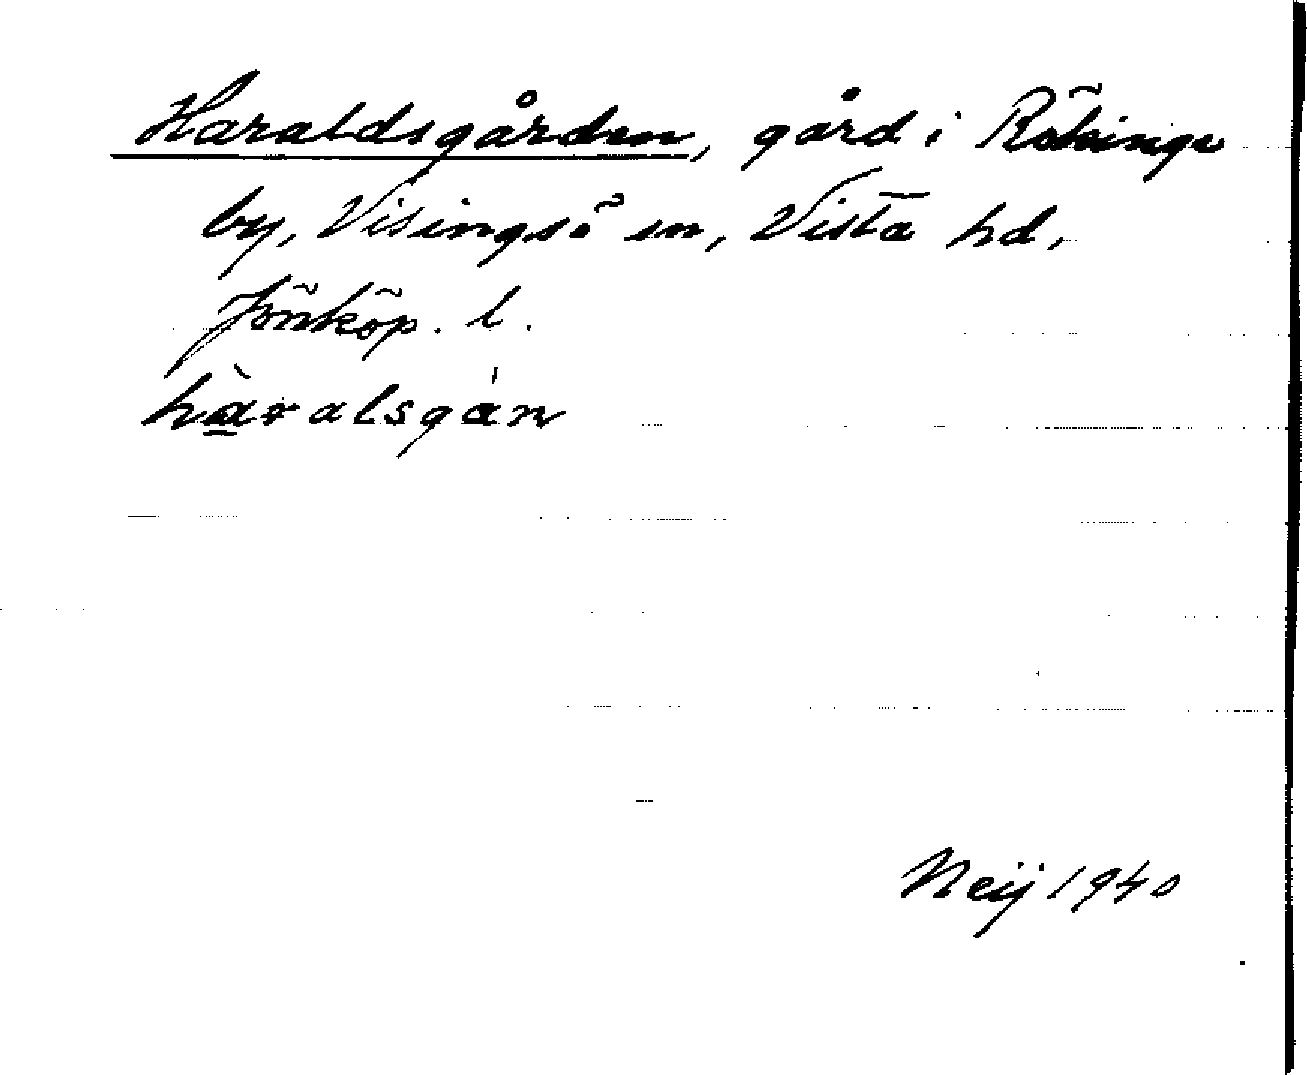 Haraldsgården, gård i Rökinge
by, Visingsö sn, Vista hd,
Jönköp. l.
hàralsgán
Neij 1940